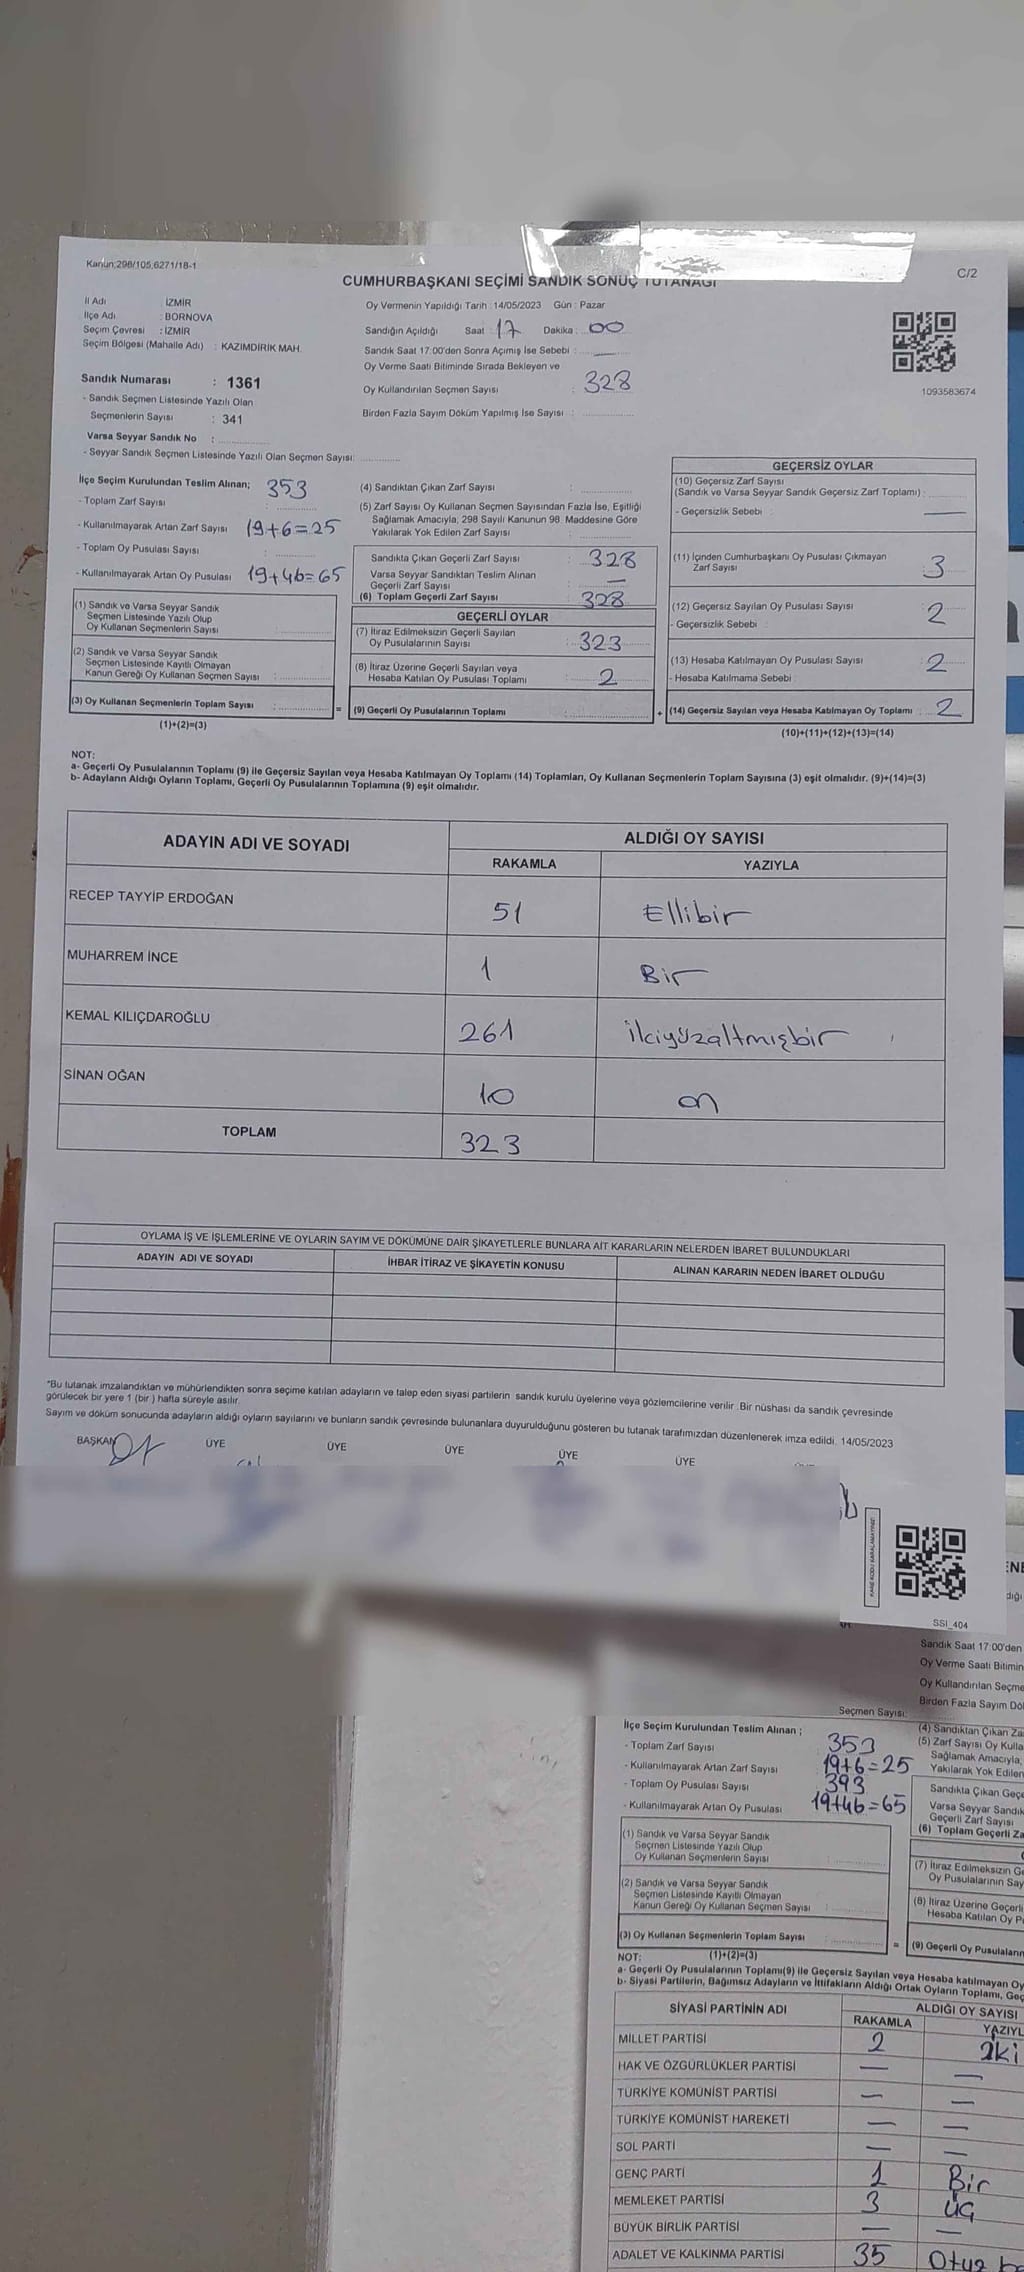 Kanun:298/105,6271/18-1
C/2
CUMHURBAŞKANI SEÇİMİ SANDIK SONUÇ TUTANAĞI
İl Adı : İZMİR
İlçe Adı : BORNOVA
Seçim Çevresi : İZMİR
Seçim Bölgesi (Mahalle Adı) : KAZIMDİRİK MAH.
Sandık Numarası : 1361
- Sandık Seçmen Listesinde Yazılı Olan
Seçmenlerin Sayısı : 341
Varsa Seyyar Sandık No :
- Seyyar Sandık Seçmen Listesinde Yazılı Olan Seçmen Sayısı:
Oy Vermenin Yapıldığı Tarih : 14/05/2023 Gün : Pazar
Sandığın Açıldığı Saat : 17 Dakika : 00
Sandık Saat 17:00'den Sonra Açımış İse Sebebi :
Oy Verme Saati Bitiminde Sırada Bekleyen ve
Oy Kullandırılan Seçmen Sayısı : 328
Birden Fazla Sayım Döküm Yapılmış İse Sayısı :
1093583674
İlçe Seçim Kurulundan Teslim Alınan; 353
- Toplam Zarf Sayısı :
- Kullanılmayarak Artan Zarf Sayısı 19+6=25
- Toplam Oy Pusulası Sayısı :
- Kullanılmayarak Artan Oy Pusulası 19+46=65
(1) Sandık ve Varsa Seyyar Sandık
Seçmen Listesinde Yazılı Olup
Oy Kullanan Seçmenlerin Sayısı :
(2) Sandık ve Varsa Seyyar Sandık
Seçmen Listesinde Kayıtlı Olmayan
Kanun Gereği Oy Kullanan Seçmen Sayısı :
(3) Oy Kullanan Seçmenlerin Toplam Sayısı :
(1)+(2)=(3)
=
(4) Sandıktan Çıkan Zarf Sayısı :
(5) Zarf Sayısı Oy Kullanan Seçmen Sayısından Fazla İse, Eşitliği
Sağlamak Amacıyla; 298 Sayılı Kanunun 98. Maddesine Göre
Yakılarak Yok Edilen Zarf Sayısı :
Sandıkta Çıkan Geçerli Zarf Sayısı : 328
Varsa Seyyar Sandıktan Teslim Alınan
Geçerli Zarf Sayısı : —
(6) Toplam Geçerli Zarf Sayısı : 328
GEÇERLİ OYLAR
(7) İtiraz Edilmeksizin Geçerli Sayılan
Oy Pusulalarının Sayısı : 323
(8) İtiraz Üzerine Geçerli Sayılan veya
Hesaba Katılan Oy Pusulası Toplamı : 2
(9) Geçerli Oy Pusulalarının Toplamı :
+
GEÇERSİZ OYLAR
(10) Geçersiz Zarf Sayısı
(Sandık ve Varsa Seyyar Sandık Geçersiz Zarf Toplamı) :
- Geçersizlik Sebebi : —
(11) İçinden Cumhurbaşkanı Oy Pusulası Çıkmayan
Zarf Sayısı : 3
(12) Geçersiz Sayılan Oy Pusulası Sayısı : 2
- Geçersizlik Sebebi :
(13) Hesaba Katılmayan Oy Pusulası Sayısı : 2
- Hesaba Katılmama Sebebi :
(14) Geçersiz Sayılan veya Hesaba Katılmayan Oy Toplamı : 2
(10)+(11)+(12)+(13)=(14)
NOT:
a- Geçerli Oy Pusulalarının Toplamı (9) ile Geçersiz Sayılan veya Hesaba Katılmayan Oy Toplamı (14) Toplamları, Oy Kullanan Seçmenlerin Toplam Sayısına (3) eşit olmalıdır. (9)+(14)=(3)
b- Adayların Aldığı Oyların Toplamı, Geçerli Oy Pusulalarının Toplamına (9) eşit olmalıdır.
ADAYIN ADI VE SOYADI ALDIĞI OY SAYISI
RAKAMLA YAZIYLA
RECEP TAYYİP ERDOĞAN 51 Ellibir
MUHARREM İNCE 1 Bir
KEMAL KILIÇDAROĞLU 261 ikiyüzaltmışbir
SİNAN OĞAN 10 on
TOPLAM 323
OYLAMA İŞ VE İŞLEMLERİNE VE OYLARIN SAYIM VE DÖKÜMÜNE DAİR ŞİKAYETLERLE BUNLARA AİT KARARLARIN NELERDEN İBARET BULUNDUKLARI
ADAYIN ADI VE SOYADI İHBAR İTİRAZ VE ŞİKAYETİN KONUSU ALINAN KARARIN NEDEN İBARET OLDUĞU
*Bu tutanak imzalandıktan ve mühürlendikten sonra seçime katılan adayların ve talep eden siyasi partilerin sandık kurulu üyelerine veya gözlemcilerine verilir. Bir nüshası da sandık çevresinde
görülecek bir yere 1 (bir) hafta süreyle asılır.
Sayım ve döküm sonucunda adayların aldığı oyların sayılarını ve bunların sandık çevresinde bulunanlara duyurulduğunu gösteren bu tutanak tarafımızdan düzenlenerek imza edildi. 14/05/2023
BAŞKAN ÜYE ÜYE ÜYE ÜYE ÜYE
KARE KODU KARALAMAYINIZ!
SSI_404
Sandık Saat 17:00'den
Oy Verme Saati Bitimin
Oy Kullandırılan Seçme
Birden Fazla Sayım Dö
Seçmen Sayısı:
İlçe Seçim Kurulundan Teslim Alınan ;
- Toplam Zarf Sayısı : 353
- Kullanılmayarak Artan Zarf Sayısı 19+6=25
- Toplam Oy Pusulası Sayısı : 393
- Kullanılmayarak Artan Oy Pusulası 19+46=65
(1) Sandık ve Varsa Seyyar Sandık
Seçmen Listesinde Yazılı Olup
Oy Kullanan Seçmenlerin Sayısı :
(2) Sandık ve Varsa Seyyar Sandık
Seçmen Listesinde Kayıtlı Olmayan
Kanun Gereği Oy Kullanan Seçmen Sayısı :
(3) Oy Kullanan Seçmenlerin Toplam Sayısı :
(1)+(2)=(3)
=
(4) Sandıktan Çıkan Za
(5) Zarf Sayısı Oy Kulla
Sağlamak Amacıyla;
Yakılarak Yok Edilen
Sandıkta Çıkan Geçe
Varsa Seyyar Sandık
Geçerli Zarf Sayısı
(6) Toplam Geçerli Za
(7) İtiraz Edilmeksizin G
Oy Pusulalarının Say
(8) İtiraz Üzerine Geçerli
Hesaba Katılan Oy P
(9) Geçerli Oy Pusulaların
NOT:
a- Geçerli Oy Pusulalarının Toplamı(9) ile Geçersiz Sayılan veya Hesaba katılmayan Oy
b- Siyasi Partilerin, Bağımsız Adayların ve İttifakların Aldığı Ortak Oyların Toplamı, Geç
SİYASİ PARTİNİN ADI ALDIĞI OY SAYISI
RAKAMLA YAZIYL
MİLLET PARTİSİ 2 iki
HAK VE ÖZGÜRLÜKLER PARTİSİ — —
TÜRKİYE KOMÜNİST PARTİSİ — —
TÜRKİYE KOMÜNİST HAREKETİ — —
SOL PARTİ — —
GENÇ PARTİ 1 Bir
MEMLEKET PARTİSİ 3 üç
BÜYÜK BİRLİK PARTİSİ — —
ADALET VE KALKINMA PARTİSİ 35 Otuz b